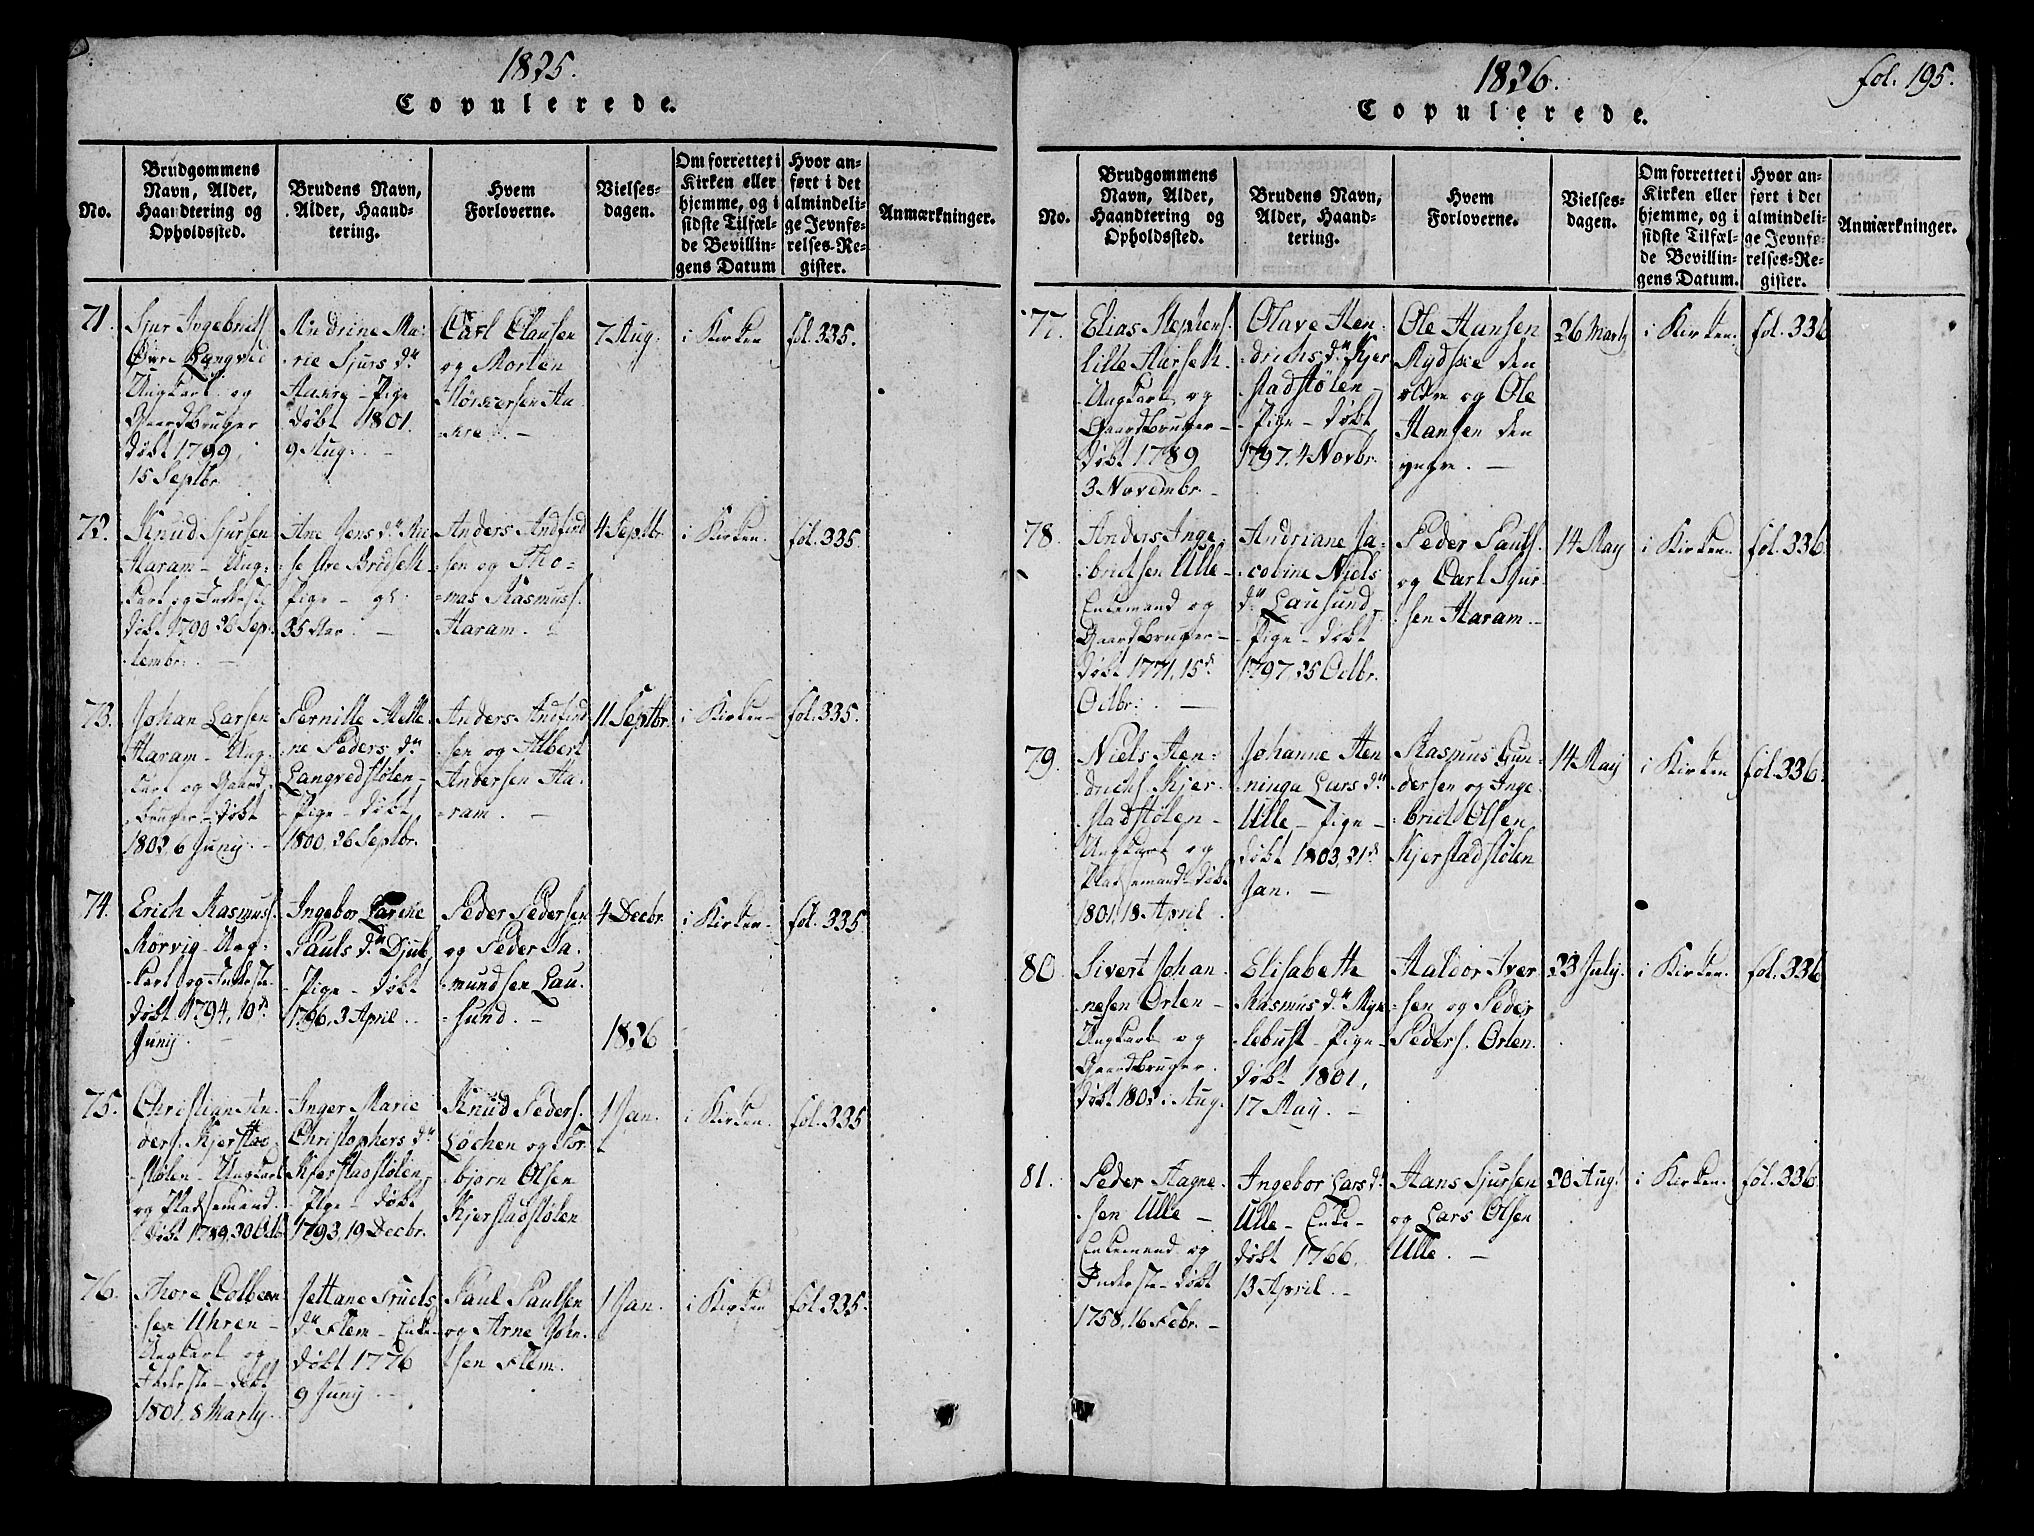 1825.
Copulerede.
No.
Brudgommens
Navn, Alder,
Haandtering og
Opholdssted.
Brudens Navn,
Alder, Haand-
tering.
Hvem
Forloverne.
Vielses-
dagen.
Om forrettet i
Kirken eller
hjemme, og i
sidste Tilfæl-
de Bevillin-
gens Datum
Hvor an-
ført i det
almindeli-
ge Jevnfø-
relses-Re-
gister.
Anmærkninger.
71.
Sjur Ingebrigts.
Øvre Langved
Ungkarl og
Gaardbruger
døbt 1799,
15 Septbr.
Andrine Ma-
rie Sjurs dr.
Aukre - Pige
døbt 1801.
9 Aug. -
Carl Clausen
og Morten
Au-
kre. -
7 Aug.
i Kirken
fol. 335.
72.
Knud Sjursen
Haram - Ung-
karl og Inderste
døbt 1800 26 Sep-
tembr. -
Ane Jens dr.
Pige - gl.
35 Aar. -
Anders Andfind
sen og Tho-
mas Rasmuss.
Haram.
4 Septbr.
i Kirken.
fol. 335.
73.
Johan Larsen
Haram - Ung-
karl og Gaard-
bruger - døbt
1802 6 Junij. -
Pernille Melle-
ne Peders dr.
Langvedstølen -
Pige - døbt
1800. 26 Septbr.
Anders Andfind
sen og Albert
Andersen Ha-
ram. -
11 Septbr.
i Kirken -
fol. 335.
74.
Erich Rasmuss.
Rørvig - Ung-
karl og Inderste
døbt 1794, 10de
Junij.
Ingebor
Pauls dr.
- Pige - døbt
1796. 3 April.
Peder Pedersen
og Peder Sa-
mundsen Lau-
sund. -
4 Decbr.
i Kirken.
fol. 335
1826
75.
Christian An-
ders. Kjerstad-
stølen - Ungkarl
og Pladsemand.
døbt 1789. 30
Inger Marie
Christophers dr.
Kjerstadstølen,
- Pige - døbt
1793, 19 Decbr.
Knud Peders.
Løchen og Tor-
bjørn Olsen
Kjerstadstølen
1 Jan.
i Kirken.
fol. 335
76.
Thore Colbeen-
sen Uhren -
Ungkarl og
Inderste - døbt
1801. 8 Martij.
Jettane Truels
dr. Flem - Enke
døbt 1776
9 Junij. -
Paul Paulsen
og Arne John-
sen Flem.
1 Jan.
i Kirken
fol. 335.
1826.
fol. 195.
Copulerede.
No.
Brudgommens
Navn, Alder,
Haandtering og
Opholdssted.
Brudens Navn,
Alder, Haand-
tering.
Hvem
Forloverne.
Vielses-
dagen.
Om forrettet i
Kirken eller
hjemme, og i
sidste Tilfæl-
de Bevillin-
gens Datum.
Hvor an-
ført i det
almindeli-
ge Jevnfø-
relses-Re-
gister.
Anmærkninger.
77.
Elias Stephens.
lille
Ungkarl og
Gaardbruger -
døbt 1789
3 Novembr. -
Olave Hen-
drichs dr. Kjer-
stadstølen -
- Pige - døbt
1797. 4 Novbr.
Ole Hansen
Rydsæ den
ældre og Ole
Hansen den
yngre. -
26 Martj
i Kirken.
fol. 336
78.
Anders Inge-
brictsen Ulle -
Enkemand og
Gaardbruger -
døbt 1771, 15de
Octbr. -
Andriane Ja-
cobine Niels
dr. Lausund,
- Pige - døbt
1797. 25 Octbr.
Peder Pauls.
og Carl Sjur-
sen Haram. -
14 May
i Kirken.
fol. 336
79.
Niels Hen-
drichs. Kjer-
stadstølen -
Ungkarl og
Pladsemand - døbt
1801. 18 April.
Johanne Hen-
ninga Lars dr.
Ulle - Pige -
døbt 1803. 21de
Jan. -
Rasmus Gun-
dersen og Inge-
brict Olsen
Kjerstadstølen
14 May
i Kirken
fol. 336.
80
Sivert Johan-
nesen Orten -
Ungkarl og
Gaardbruger.
døbt 1802. 1 Aug.
Elisabeth
Rasmus dr. Myk-
lebust - Pige -
døbt 1801,
17 May. -
Haldor Iver-
sen og Peder
Peders. Orten.
23 July.
i Kirken.
fol. 336
81.
Peder Hagne-
sen Ulle -
Enkemand og
Inderste - døbt
1758. 16 Febr. -
Ingebor Lars dr.
Ulle - Enke -
døbt 1766.
13 April. -
Hans Sjursen
og Lars Olsen
Ulle. -
20 Aug.
i Kirken.
fol. 336.